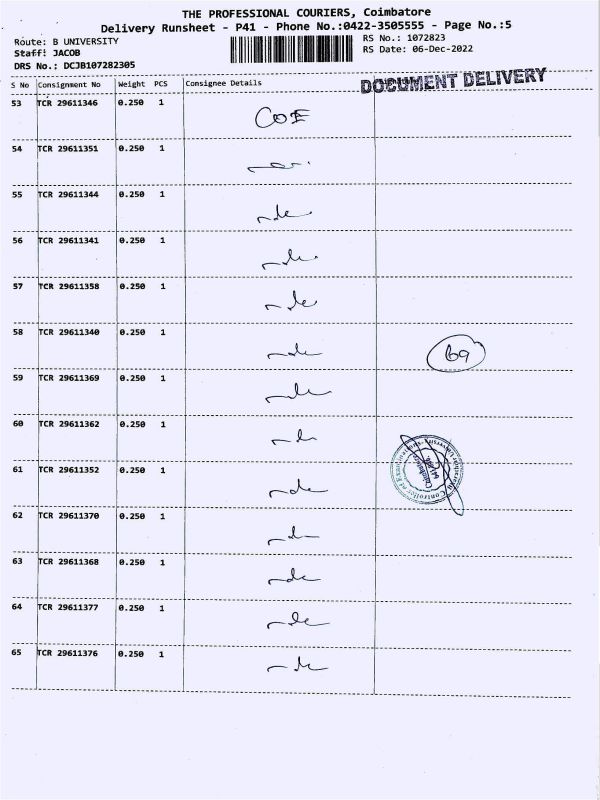 THE PROFESSIONAL COURIERS, Coimbatore
Delivery Runsheet - P41 - Phone No.:0422-3505555 - Page No.:5
Route: B UNIVERSITY
Staff: JACOB
DRS No.: DCJB107282305
RS No.: 1072823
RS Date: 06-Dec-2022
DOCUMENT DELIVERY
S No Consignment No Weight PCS Consignee Details
53 TCR 29611346 0.250 1 COE
54 TCR 29611351 0.250 1
55 TCR 29611344 0.250 1
56 TCR 29611341 0.250 1
57 TCR 29611358 0.250 1
58 TCR 29611340 0.250 1
69
59 TCR 29611369 0.250 1
60 TCR 29611362 0.250 1
61 TCR 29611352 0.250 1
Controller of Examinations
Coimbatore
62 TCR 29611370 0.250 1
63 TCR 29611368 0.250 1
64 TCR 29611377 0.250 1
65 TCR 29611376 0.250 1